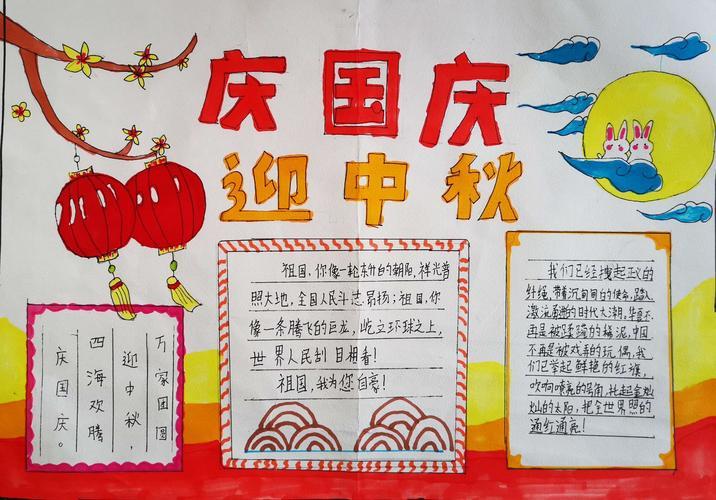 庆国庆
迎中秋
万家团圆
迎中秋,
四海欢腾
庆国庆。
祖国,你像一轮东升的朝阳,祥光普
照大地,全国人民斗志昂扬;祖国,你
像一条腾飞的巨龙,屹立环球之上,
世界人民刮目相看!
祖国,我为您自豪!
我们已经拽起正义的
纤绳,带着沉甸甸的使命,踏入
激流 的时代大潮,华夏不
再是被蹂躏的稀泥,中国
不再是被戏弄的玩偶,我
们已举起鲜艳的红旗,
吹响嘹亮的号角,托起金灿
灿的太阳,把全世界照的
通红通亮!